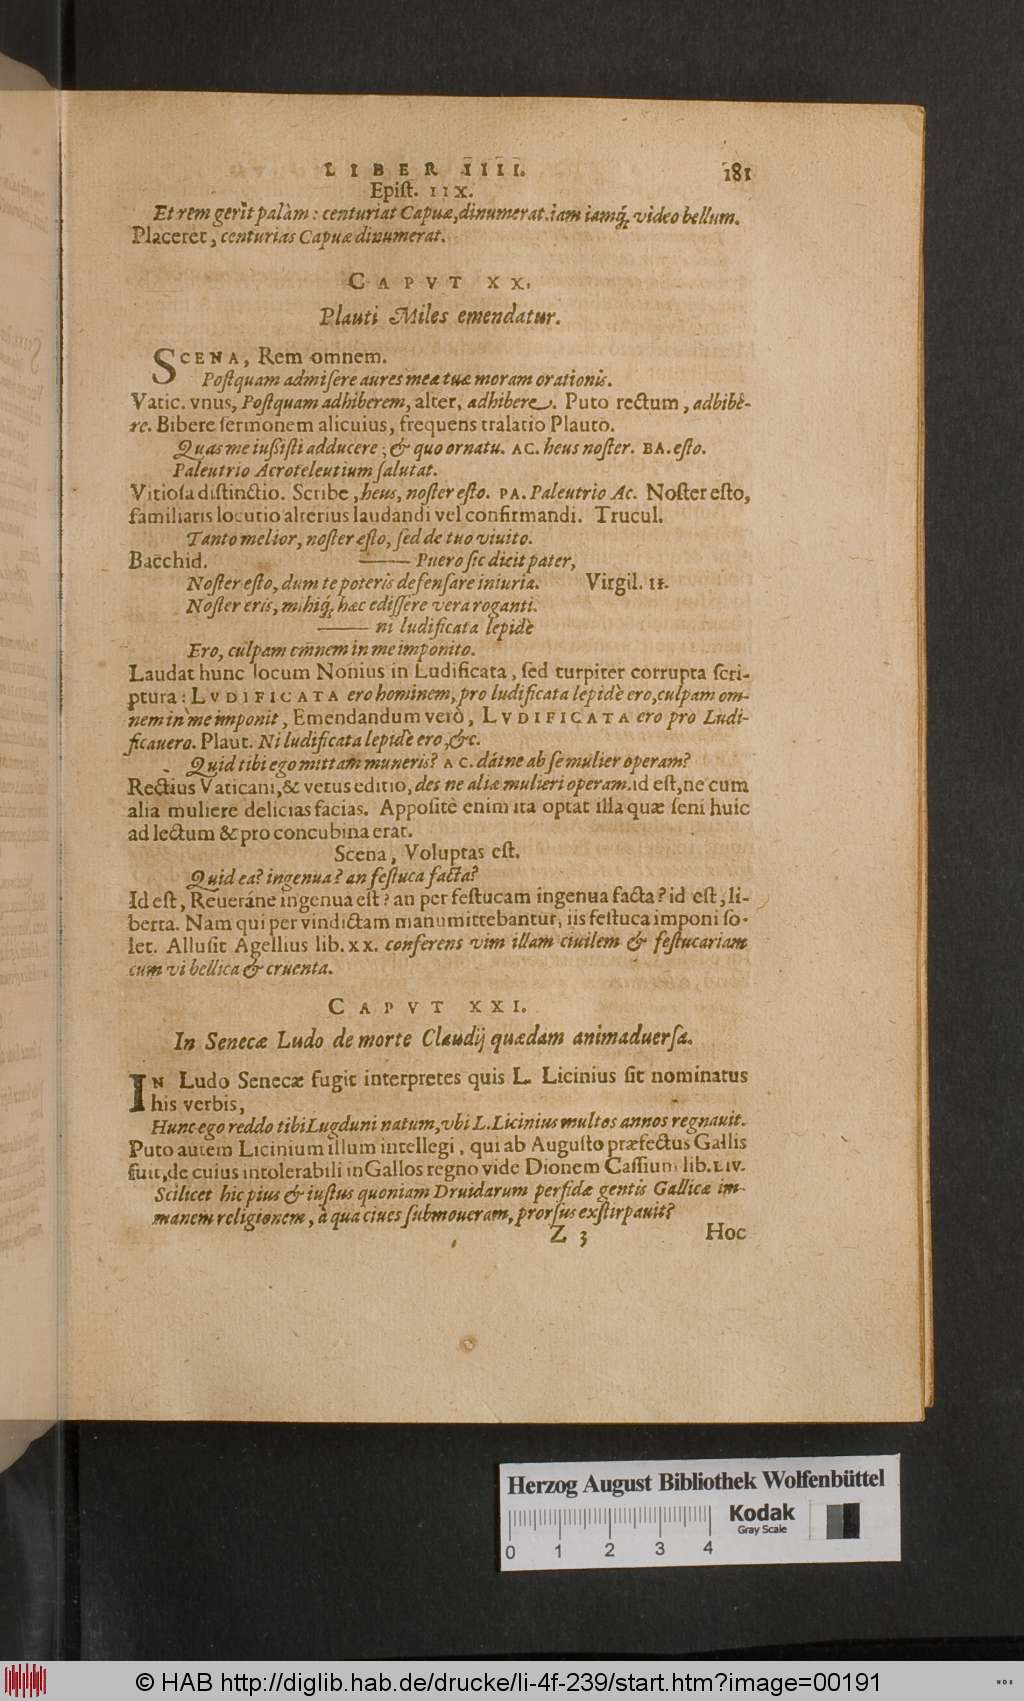 LIBER IIII. 181
Epist. IIX.
Et rem gerit palàm: centuriat Capuæ, dinumerat. iam iamq; video bellum.
Placeret, centurias Capuæ dinumerat.
CAPVT XX.
Plauti Miles emendatur.
SCENA, Rem omnem.
Postquam admisere aures meæ tuæ moram orationis.
Vatic. vnus, Postquam adhiberem, alter, adhibere. Puto rectum, adbibê-
re. Bibere sermonem alicuius, frequens tralatio Plauto.
Quas me iussisti adducere; & quo ornatu. AC. heus noster. BA. esto.
Paleutrio Acroteleutium salutat.
Vitiosa distinctio. Scribe, heus, noster esto. PA. Paleutrio Ac. Noster esto,
familiaris locutio alterius laudandi vel confirmandi. Trucul.
Tanto melior, noster esto, sed de tuo viuito.
Bacchid. —— Puero sic dicit pater,
Noster esto, dum te poteris defensare iniuria. Virgil. II.
Noster eris, mihiq; hæc edissere vera roganti.
—— ni ludificata lepidè
Ero, culpam omnem in me imponito.
Laudat hunc locum Nonius in Ludificata, sed turpiter corrupta scri-
ptura: LVDIFICATA ero hominem, pro ludificata lepidè ero, culpam om-
nem in me imponit, Emendandum verò, LVDIFICATA ero pro Ludi-
ficauero. Plaut. Ni ludificata lepidè ero, &c.
Quid tibi ego mittam muneris? AC. dátne ab se mulier operam?
Rectius Vaticani, & vetus editio, des ne aliæ mulieri operam. id est, ne cum
alia muliere delicias facias. Appositè enim ita optat illa quæ seni huic
ad lectum & pro concubina erat.
Scena, Voluptas est.
Quid ea? ingenua? an festuca facta?
Id est, Reueráne ingenua est? an per festucam ingenua facta? id est, li-
berta. Nam qui per vindictam manumittebantur, iis festuca imponi so-
let. Allusit Agellius lib. XX. conferens vim illam ciuilem & festucariam
cum vi bellica & cruenta.
CAPVT XXI.
In Senecæ Ludo de morte Claudij quædam animaduersa.
IN Ludo Senecæ fugit interpretes quis L. Licinius sit nominatus
his verbis,
Hunc ego reddo tibi Lugduni natum, vbi L. Licinius multos annos regnauit.
Puto autem Licinium illum intellegi, qui ab Augusto præfectus Gallis
fuit, de cuius intolerabili in Gallos regno vide Dionem Cassium lib. LIV.
Scilicet hic pius & iustus quoniam Druidarum perfidæ gentis Gallicæ im-
manem religionem, à qua ciues submoueram, prorsus exstirpauit?
Z 3 Hoc
Herzog August Bibliothek Wolfenbüttel
Kodak
Gray Scale
0 1 2 3 4
© HAB http://diglib.hab.de/drucke/li-4f-239/start.htm?image=00191